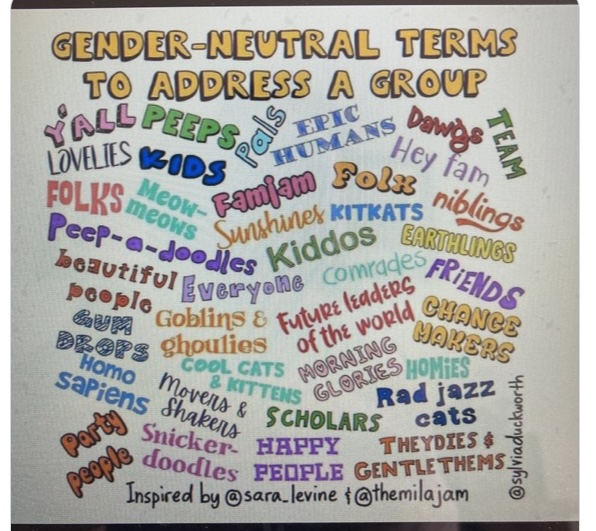 GENDER-NEUTRAL TERMS
TO ADDRESS A GROUP
Y'ALL
PEEPS
Pals
EPIC
HUMANS
Dawgs
TEAM
LOVELIES
KIDS
Hey fam
FOLKS
Meow-
meows
Famjam
Folx
niblings
Sunshines
KITKATS
Peep-a-doodles
Kiddos
EARTHLINGS
beautiful
people
Everyone
comrades
FRiENDS
GUM
DROPS
Goblins &
ghoulies
Future leaders
of the world
CHANGE
MAKERS
Homo
sapiens
COOL CATS
& KITTENS
MORNING
GLORIES
HOMIES
Movers &
Shakers
Rad jazz
cats
SCHOLARS
Party
people
Snicker-
doodles
HAPPY
PEOPLE
THEYDIES &
GENTLETHEMS
@sylviaduckworth
Inspired by @sara_levine & @themilajam